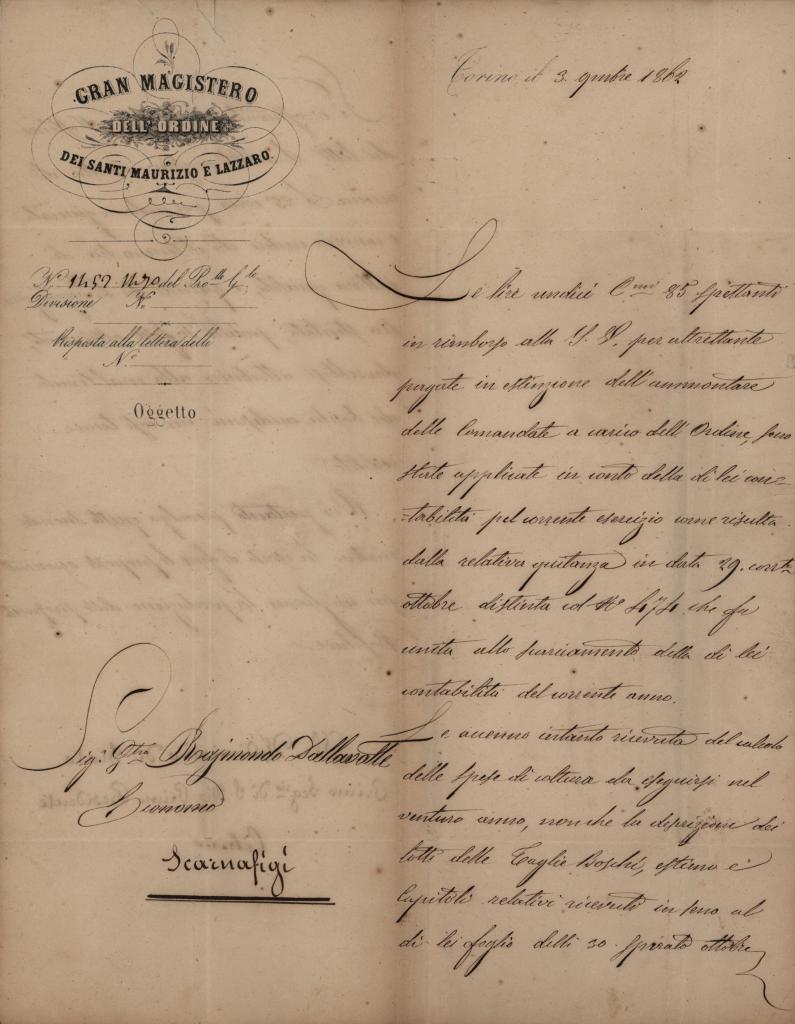 GRAN MAGISTERO
DELL'ORDINE
DEI SANTI MAURIZIO E LAZZARO.
Torino il 3. 9mbre 1862
N.º 1452 1470 del Pro.llo G.le
Divisione N.º
Risposta alla lettera delli
N.º
Oggetto
Le lire undici C.mi 85 spettanti
in rimborso alla S. V. per altrettante
pagate in estinzione dell'ammontare
delle Comandate a carico dell'Ordine, sono
state applicate in conto della di lei con=
=tabilità pel corrente esercizio come risulta
dalla relativa quitanza in data 29. corr.te
ottobre distinta col Nº 474 che fu
unita allo scaricamento della di lei
contabilità del corrente anno.
Le accenno intanto ricevuta del calcolo
delle spese di coltura da eseguirsi nel
venturo anno, nonchè la descrizione dei
lotti delle Taglie Boschi, estimo e
Capitoli relativi ricevuti in seno al
di lei foglio delli 30 spirato ottobre
Sig.r Raimondo Dallavalle
Economo
Scarnafigi